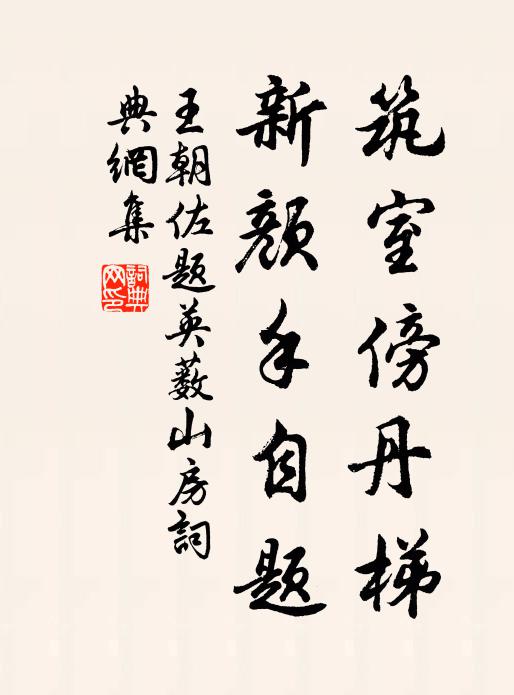 筑室傍丹梯
新顏手自題
王朝佐題英薮山房詞
典網集
詞典網印